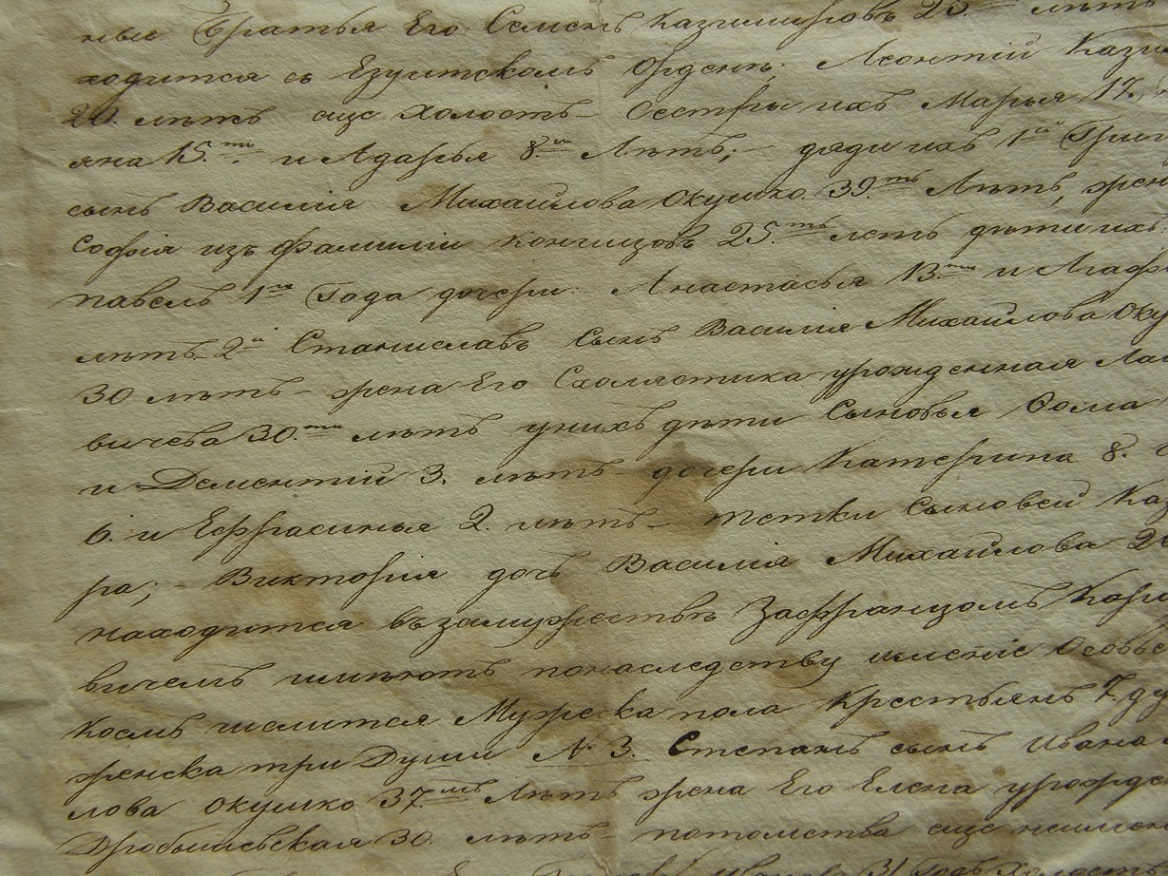 ные Братья Его Семенъ Казимировъ 25. лѣтъ
ходится въ Езуитскомъ Орденѣ; Леонтій Кази
20. лѣтъ еще холостъ – Сестры ихъ Марья 17.
яна 15.ти и Адарья 8.и Лѣтъ; – дяди ихъ 1й Григ
сынъ Василія Михайлова Окушко 39.ть Лѣтъ, жен
Софія изъ фамиліи Кончицовъ 25.ть летъ дѣти ихъ:
павелъ 1го Года дочери: Анастасья 13.ти и Агаф
лѣтъ – 2й Станиславъ Сынъ Василія Михайлова Оку
30 лѣтъ – жена Его Схолястика урожденная Ла
вичева 30.ти лѣтъ унихъ дѣти Сыновья Фома
и Дементій 3. лѣтъ дочери Катерина 8.
6. и Ефрасинья 2. лѣтъ – тетки Сыновей Каз
ра; – Викторія дочь Василія Михайлова 2
находится възамужествѣ Зафранцомъ Кар
вичемъ имѣютъ понаследству именіе Особ
коемъ числится Мужска пола Крестьянъ 7. ду
женска три Души № 3. Степанъ сынъ Ивана
лова Окушко 37.мъ Лѣтъ жена Его Елена урожде
Дробышевская 30. лѣтъ – потомства еще неиме
31 Годъ Холостъ